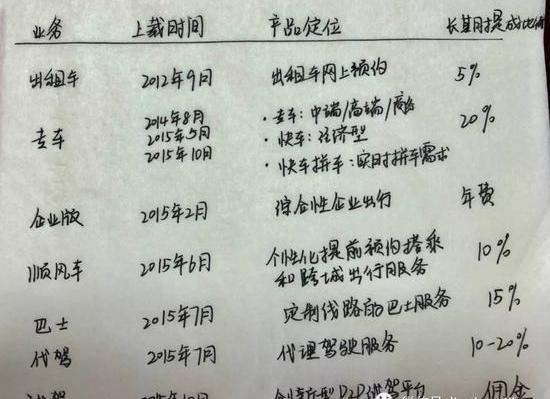 业务 上载时间 产品定位 长期提成比例
出租车 2012年9月 出租车网上预约 5%
专车 2014年8月 ·专车：中端/高端/商务 20%
2015年5月 ·快车：经济型
2015年10月 ·快车拼车：实时拼车需求
企业版 2015年2月 综合性企业出行 年费
顺风车 2015年6月 个性化提前预约搭乘 10%
和跨城出行服务
巴士 2015年7月 定制线路的巴士服务 15%
代驾 2015年7月 代理驾驶服务 10-20%
试驾 2015年10月 创新型P2P试驾平台 佣金